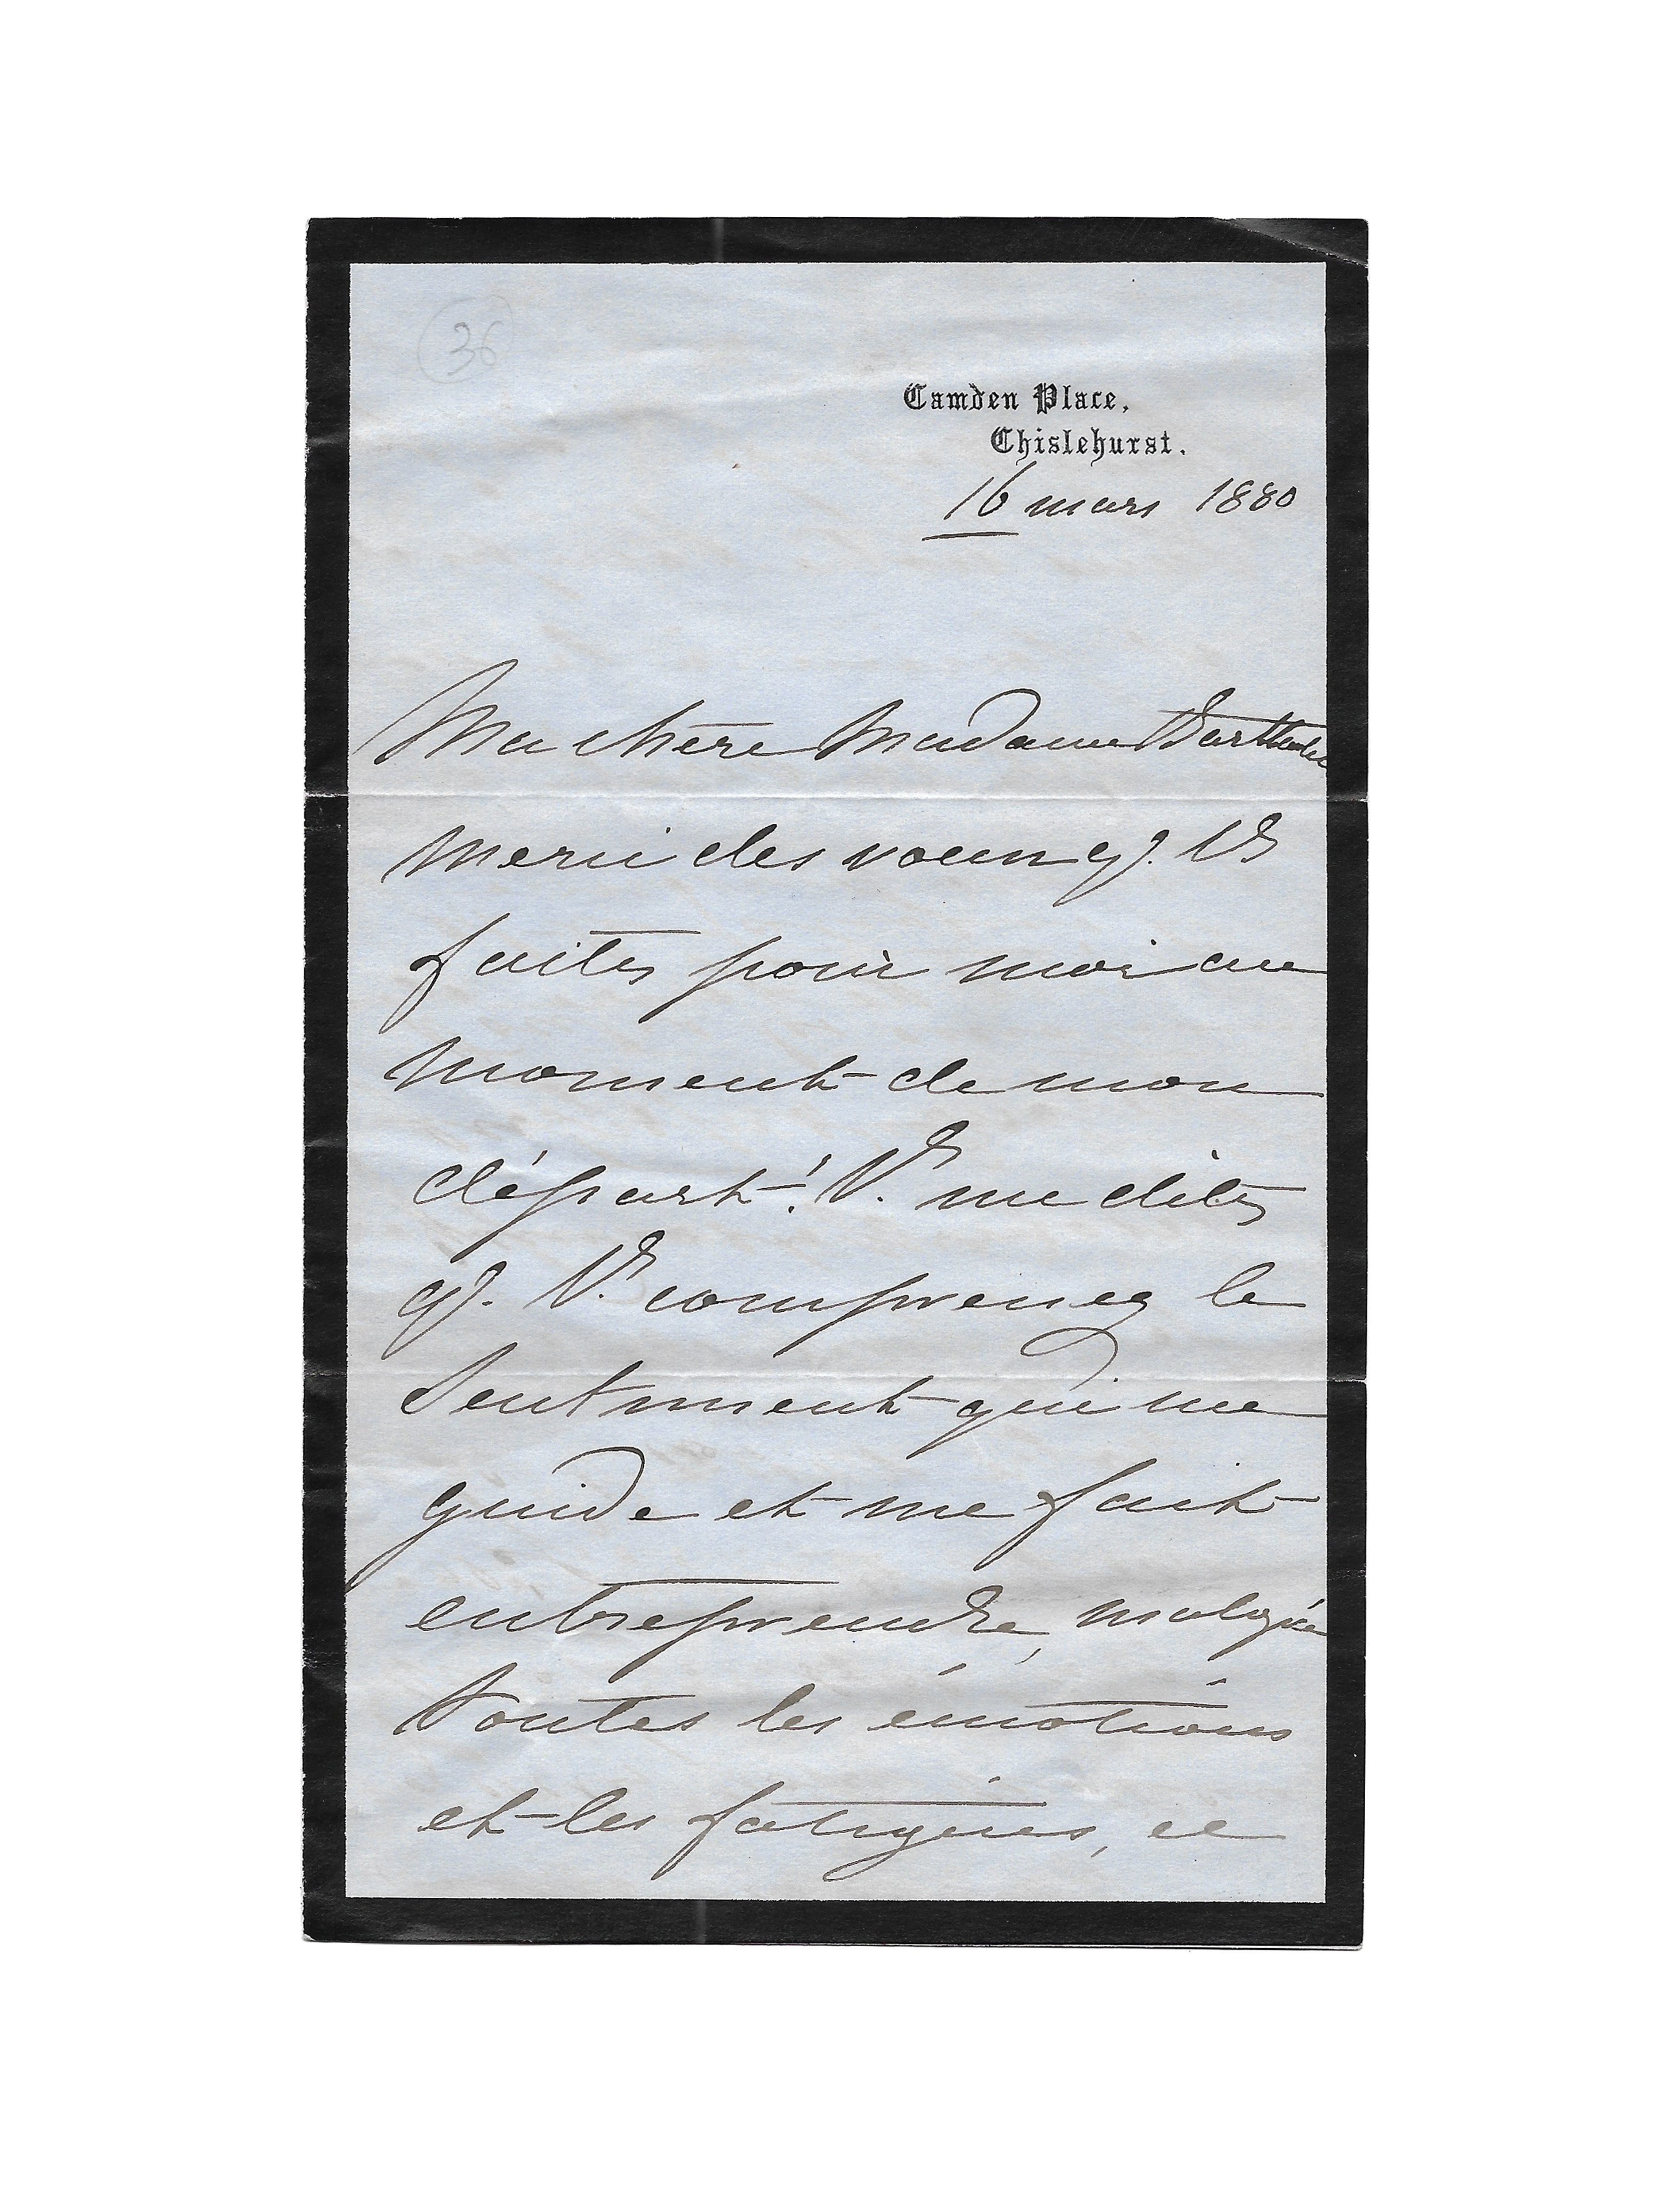 36
Camden Place,
Chislehurst.
16 mars 1880
Ma chère Madame
merci des voeux q. Vs
faites pour moi au
moment de mon
départ! Vs me dites
q. Vs comprenez le
sentiment qui me
guide et me fait
entreprendre, malgré
toutes les émotions
et les fatigues, ce